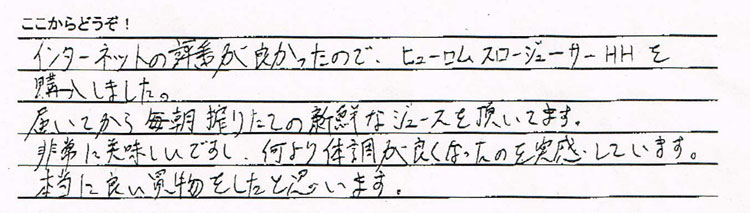 ここからどうぞ！
インターネットの評番が良かったので、ヒューロムスロージューサーHHを
購入しました。
届いてから毎朝搾りたての新鮮なジュースを頂いてます。
非常に美味しいですし、何より体調が良くなったのを実感しています。
本当に良い買物をしたと思います。